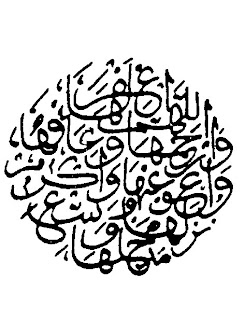 اللهم اغفر لها
وارحمها وعافها
واعف عنها وأكرم
نزلها ووسع
مدخلها